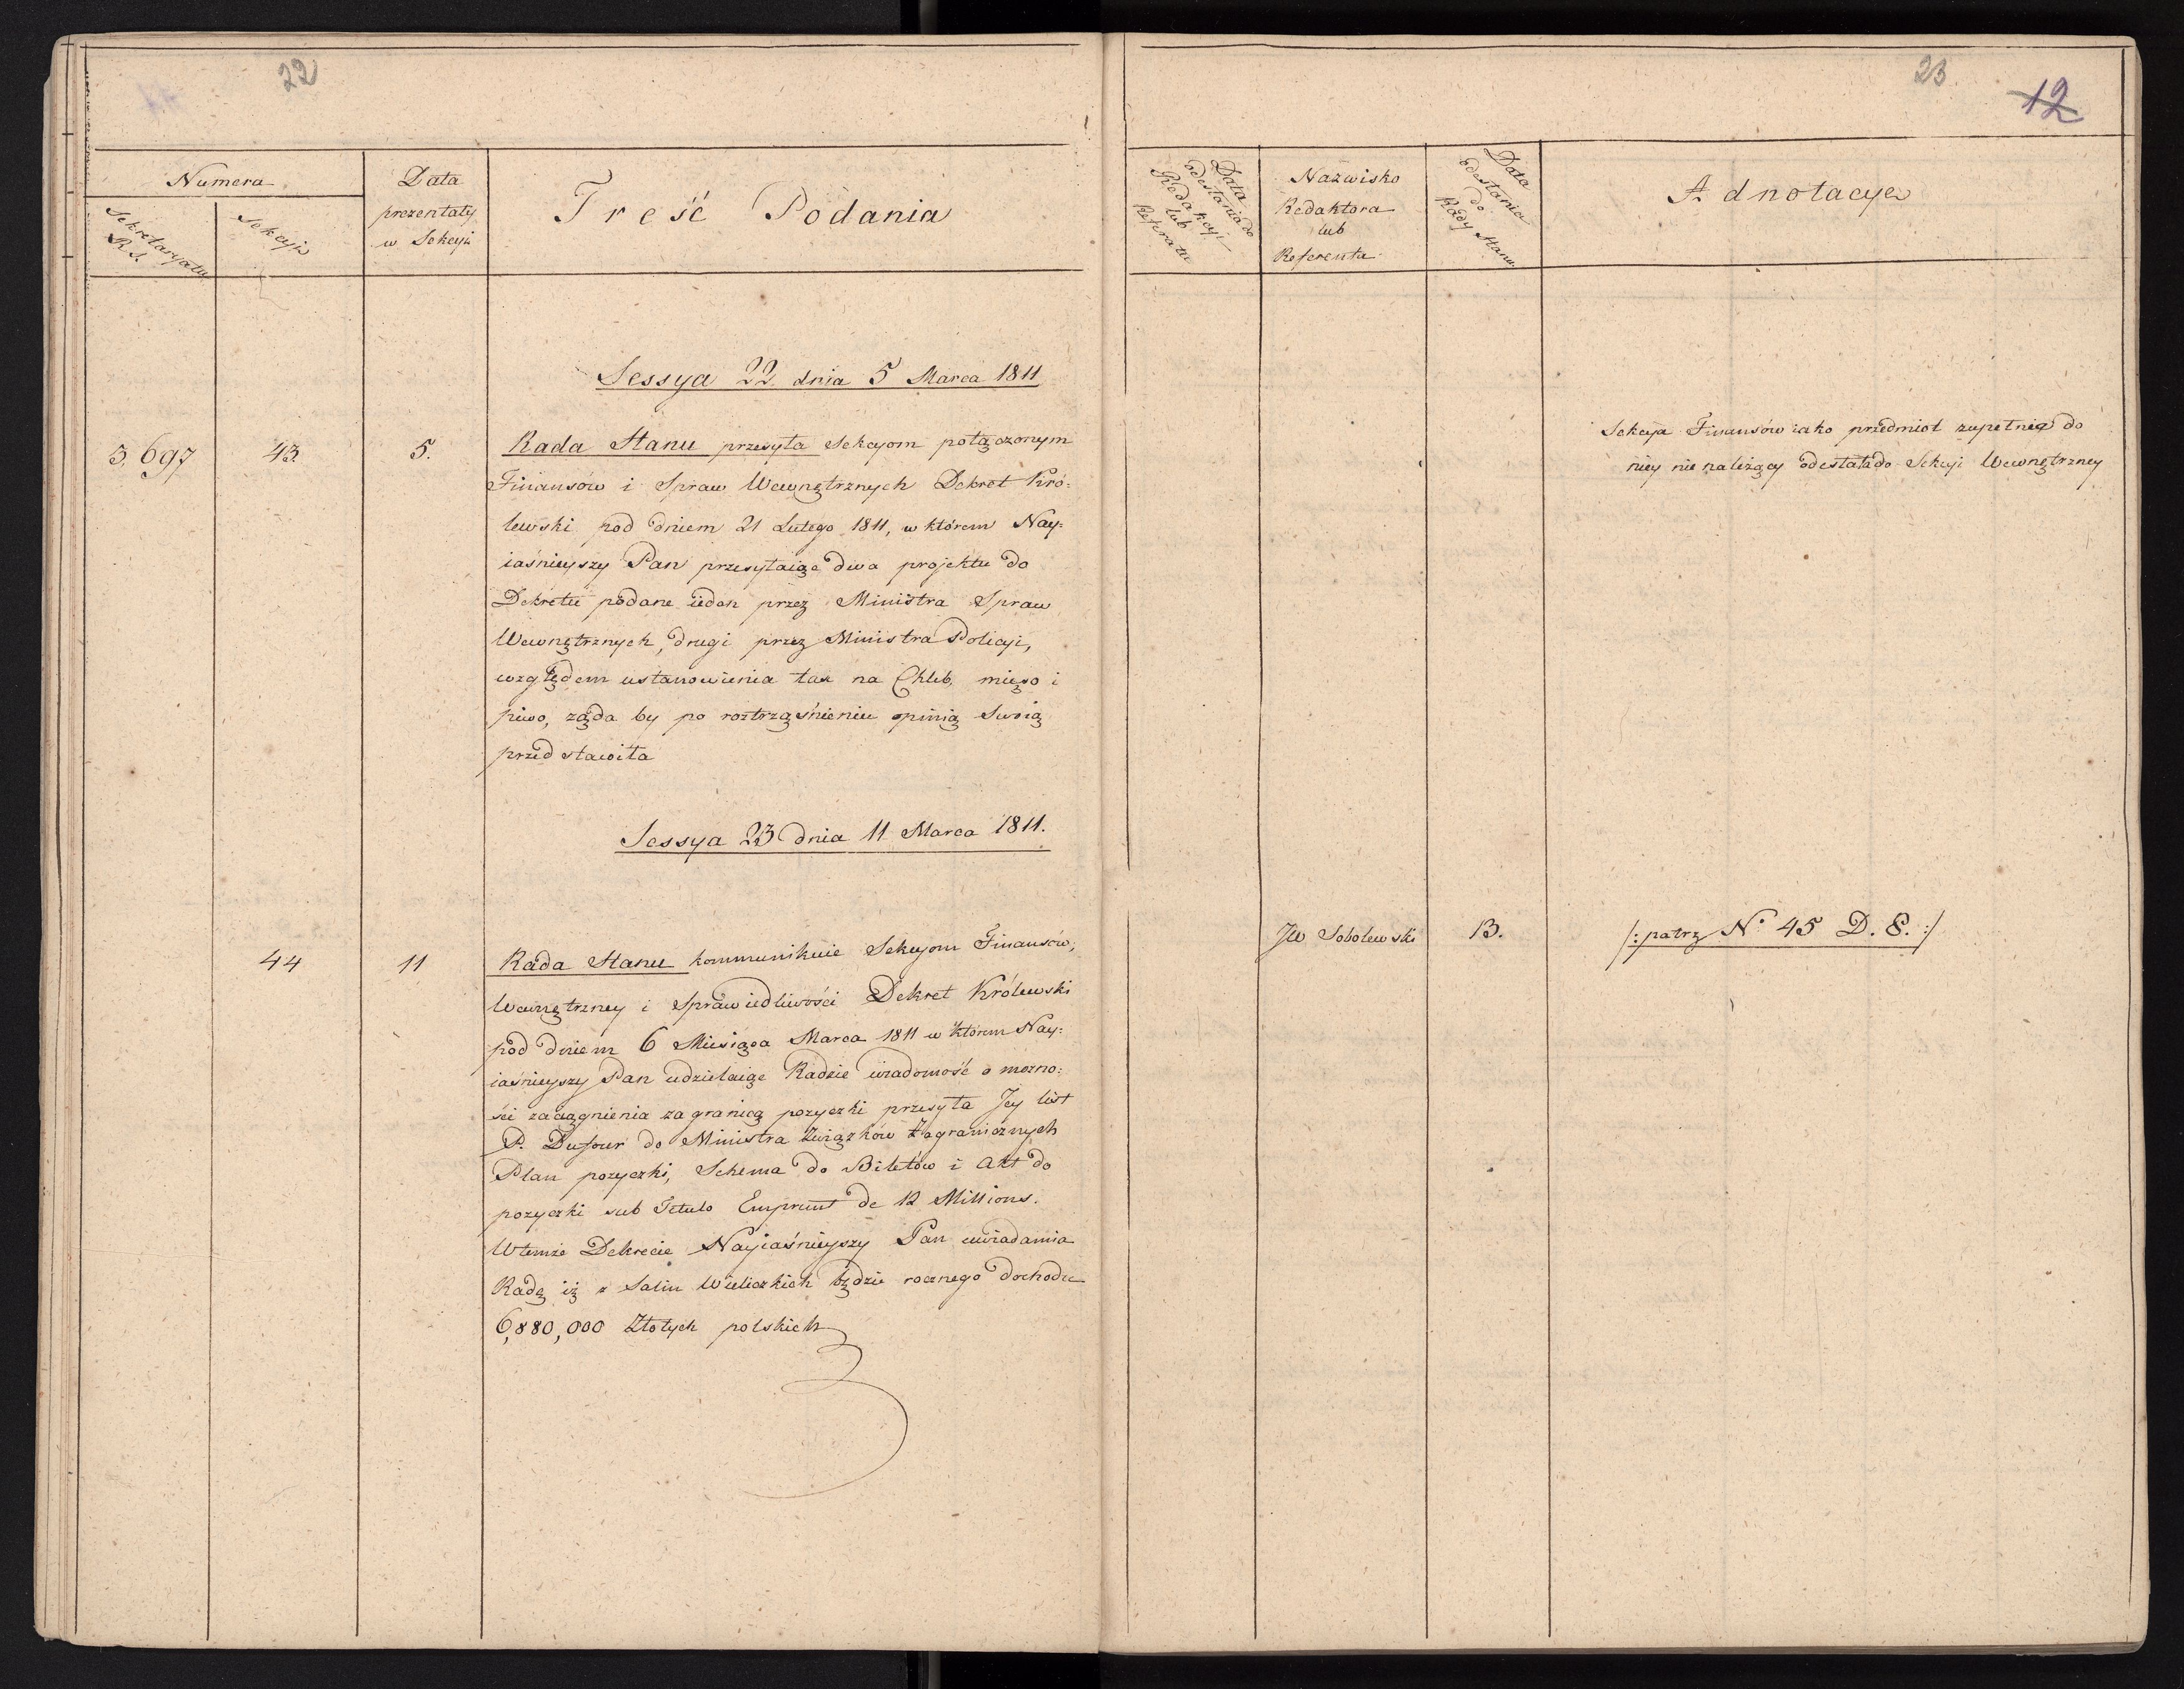 22
Numera
Sekretaryatu
R. S.
Sekcyi
Data
prezentaty
w Sekcyi
Treść Podania
Sessya 22 dnia 5 Marca 1811
3,697
43.
5.
Rada Stanu przesyła Sekcyom połączonym
Finansów i Spraw Wewnętrznych Dekret Kró=
lewski pod dniem 21 Lutego 1811, w którem Nay=
iaśnieyszy Pan przesyłaiąc dwa projektu do
Dekretu podane ieden przez Ministra Spraw
Wewnętrznych, drugi przez Ministra Policyi,
względem ustanowienia tax na Chleb, mięso i
piwo, żąda by po roztrząśnieniu opinią swoią
przedstawiła
Sessya 23 dnia 11 Marca 1811.
44
11
Rada Stanu kommunikuie Sekcyom Finansów,
Wewnętrzney i Sprawiedliwości Dekret Królewski
pod dniem 6 Miesiąca Marca 1811 w którem Nay=
iaśnieyszy Pan udzielaiąc Radzie wiadomość o możno=
ści zaciągnienia zagranicą pożyczki przesyła Jey list
P. Dufour do Ministra Związków Zagranicznych
Plan pożyczki, Schema do Biletów i Akt do
pożyczki sub Titulo Emprunt de 12 Millions.
W temże Dekrecie Nayiaśnieyszy Pan uwiadamia
Radę iż z Salin Wieliczkich będzie rocznego dochodu
6,880,000 Złotych polskich
23
12
Data
odesłania do
Redakcyi
lub
Referatu
Nazwisko
Redaktora
lub
Referenta
Data
odesłania
do
Rady Stanu
Adnotacye
Sekcya Finansów iako przedmiot zupełnie do
niey nie należący odesłała do Sekcyi Wewnętrzney
JW Sobolewski
13.
/: patrz N° 45 D. 8. :/